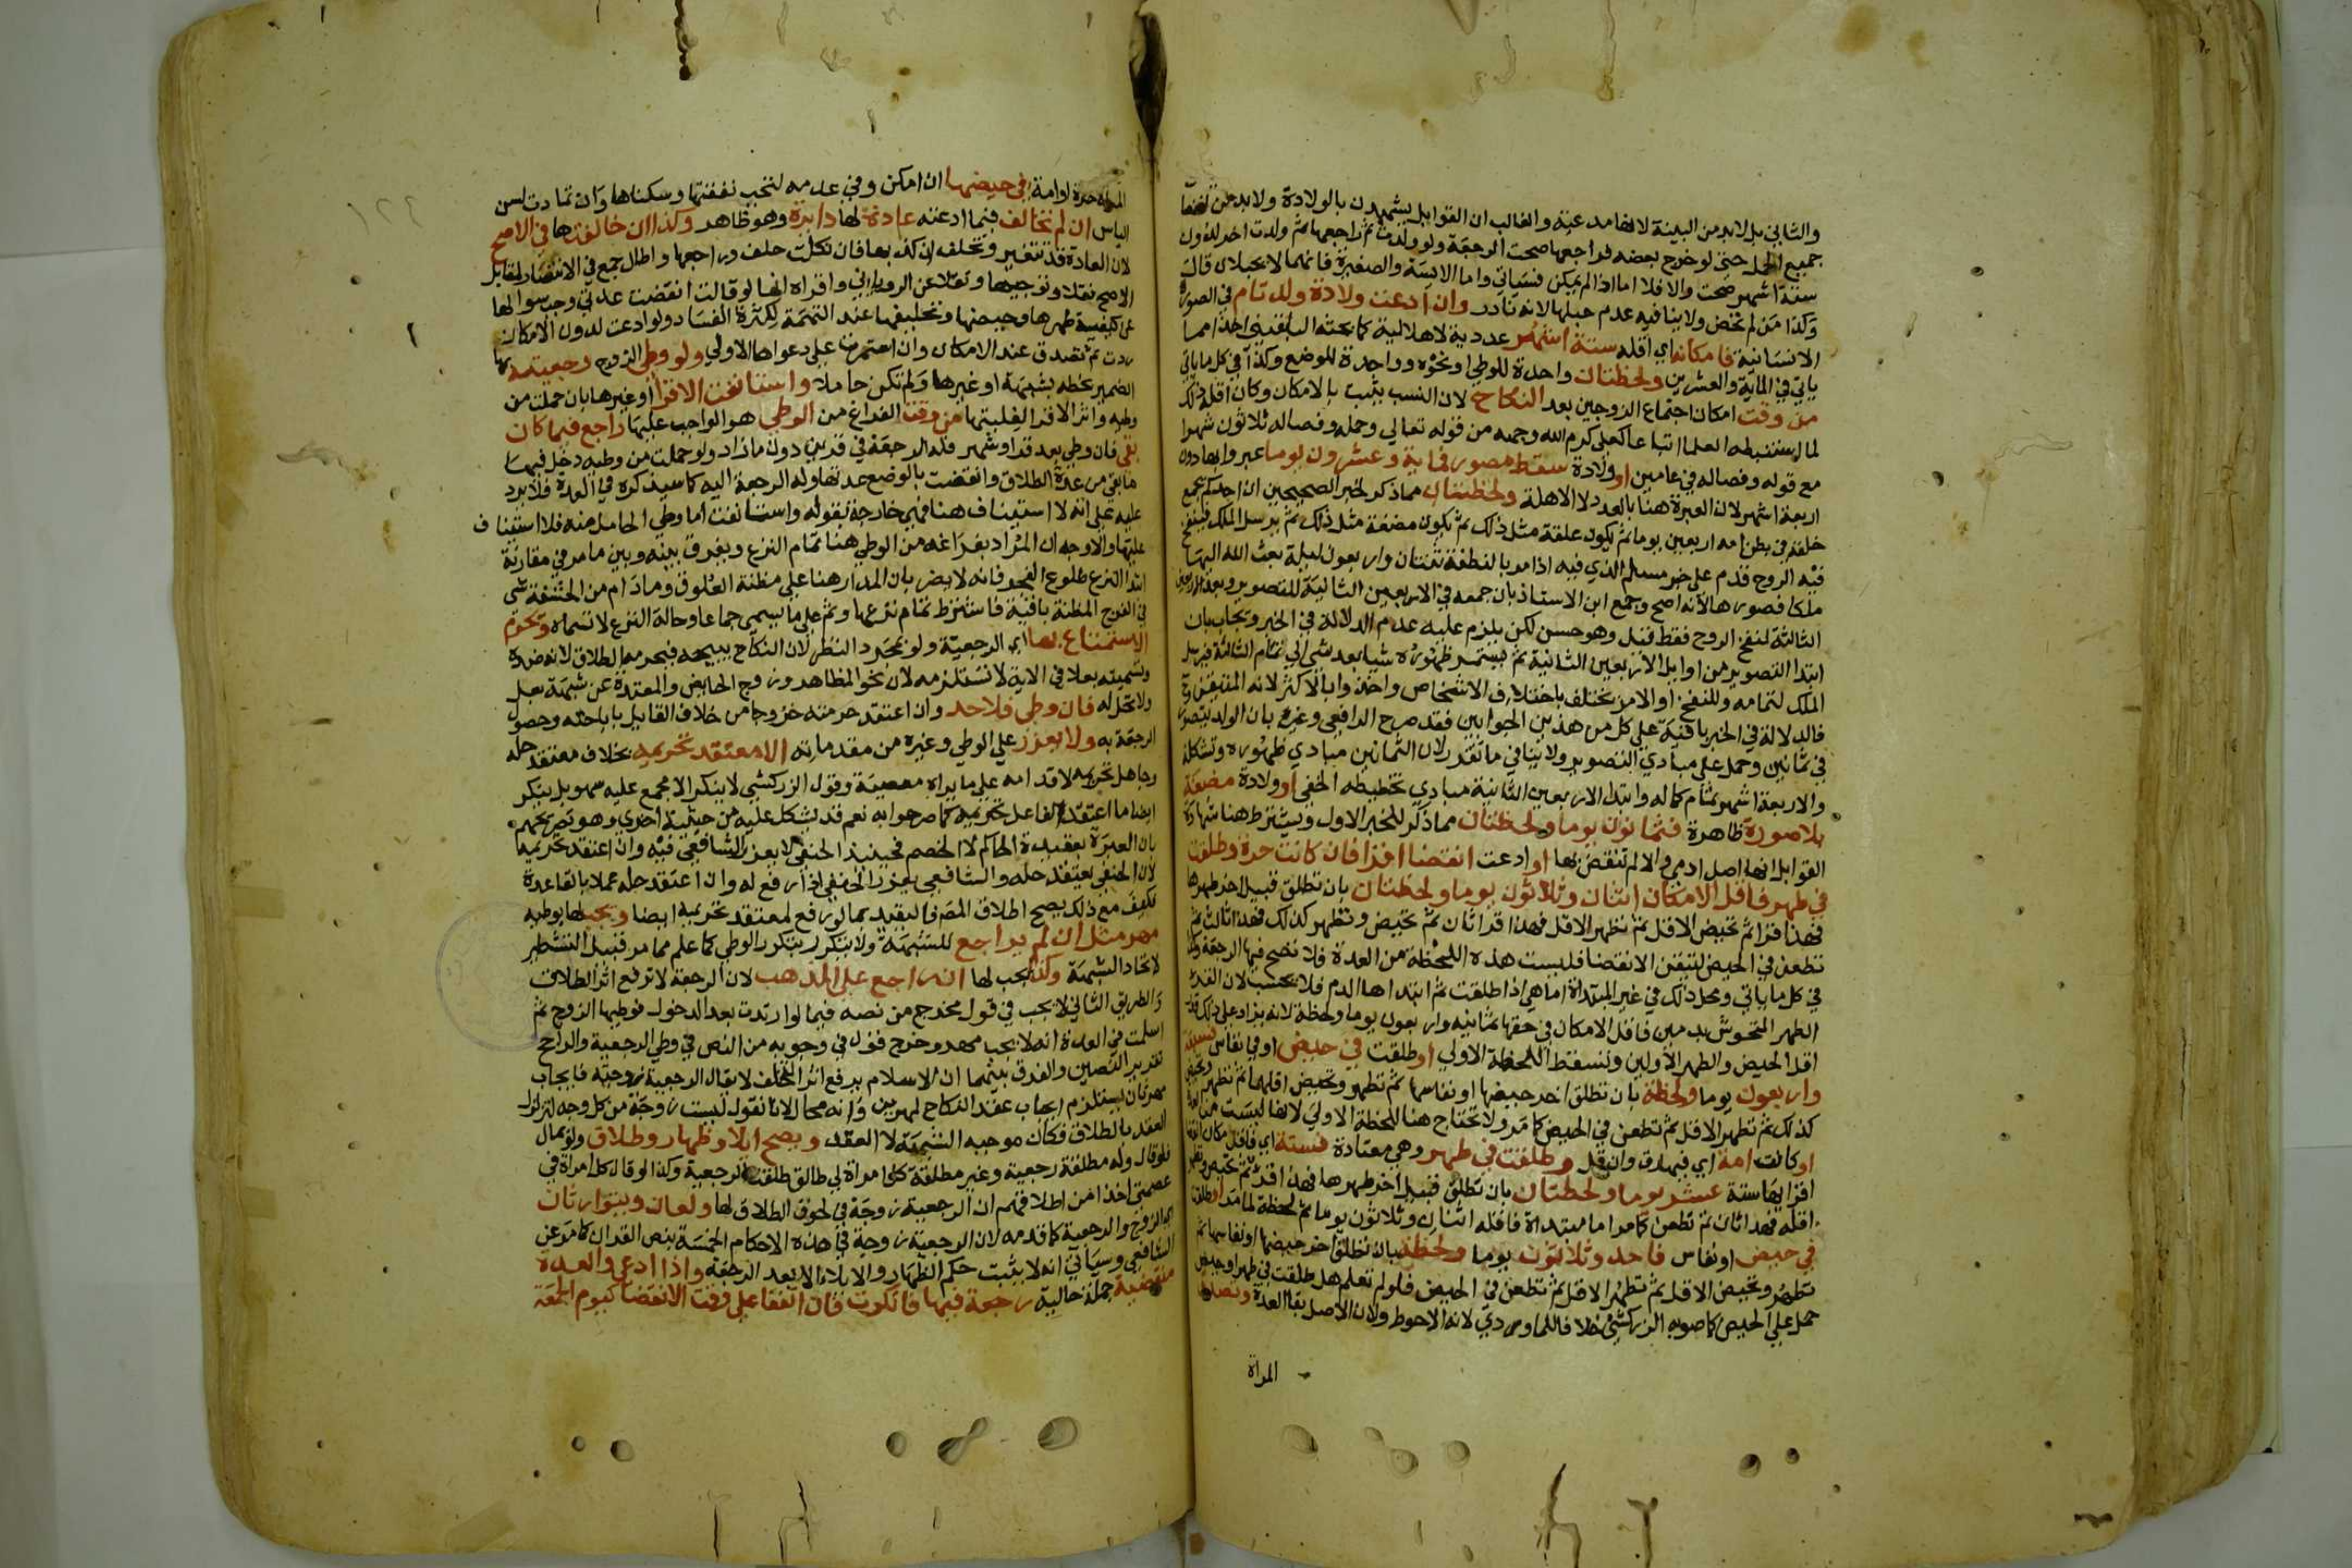 والثاني بل لابد من البينة لانها مدعية والغالب ان القوابل يشهدن بالولادة ولابد من انفصال
جميع الحمل حتى لو خرج بعضه فراجعها صحت الرجعة ولو ولدت ثم راجعها ثم ولدت اخر لدون
ستة اشهر صحت والا فلا اما اذا لم يمكن فسياتي واما الايسة والصغيرة فانهما لا يحبلان قال
وكذا من لم تحض ولا ينافيه عدم حبلها لانه نادر وان ادعت ولادة ولد تام في الصورة
الانسانية فامكانه اي اقله ستة اشهر عددية لا هلالية كما بحثه البلقيني اخذا مما
ياتي في الماية والعشرين ولحظتان واحدة للوطي او نحوه وواحدة للوضع وكذا في كل ما ياتي
من وقت امكان اجتماع الزوجين بعد النكاح لان النسب يثبت بالامكان وكان اقله ذلك
لما استنبطه العلما اتباعا كعلي كرم الله وجهه من قوله تعالى وحمله وفصاله ثلاثون شهرا
مع قوله وفصاله في عامين او ولادة سقط مصور فماية وعشرون يوما عبروا بها دون
اربعة اشهر لان العبرة هنا بالعدد لا الاهلة ولحظتان مما ذكر لخبر الصحيحين ان احدكم يجمع
خلقه في بطن امه اربعين يوما ثم يكون علقة مثل ذلك ثم يكون مضغة مثل ذلك ثم يرسل الملك فينفخ
فيه الروح قدم على خبر مسلم الذي فيه اذا مر بالنطفة ثنتان واربعون ليلة بعث الله اليها
ملكا فصورها لانه اصح وجمع ابن الاستاذ بان جمعه في الاربعين الثانية للتصوير وبعد الاربعين
الثالثة لنفخ الروح فقط قيل وهو حسن لكن يلزم عليه عدم الدلالة في الخبر ويجاب بان
ابتدا التصوير من اوايل الاربعين الثانية ثم يستمر ظهوره شيا بعد شي الى تمام الثالثة فيرسل
الملك لتمامه وللنفخ او الامر يختلف باختلاف الاشخاص واخذوا بالاكثر لانه المتيقن
فالدلالة في الخبر باقية على كل من هذين الجوابين فقد صرح الرافعي وغيره بان الولد يتصور
في ثمانين وحمل على مبادي التصوير ولا ينافي ما تقرر لان الثمانين مبادي ظهوره وتشكله
والاربعة اشهر تمام كماله وابتدا الاربعين الثانية مبادي تخطيطه الخفي او ولادة مضغة
بلا صورة ظاهرة فثمانون يوما ولحظتان مما ذكر للخبر الاول ويشترط هنا شهادة
القوابل انها اصل ادمي والا لم تنقض بها او ادعت انقضا اقرا فان كانت حرة وطلقت
في طهر فاقل الامكان اثنان وثلاثون يوما ولحظتان بان تطلق قبيل اخر طهرها
فهذا قرا ثم تحيض الاقل ثم تطهر الاقل فهذا قرا ثان ثم تحيض وتطهر كذلك فهذا ثالث ثم
تطعن في الحيض لتيقن الانقضا فليست هذه اللحظة من العدة فلا تصح فيها الرجعة وكذا
في كل ما ياتي ومحل ذلك في غير المبتداة اما هي اذا طلقت ثم ابتداها الدم فلا يحسب لان القرء
الطهر المحتوش بدمين فاقل الامكان في حقها ثمانية واربعون يوما ولحظة لانه يزاد على ذلك قدر
اقل الحيض والطهر الاولين وتسقط اللحظة الاولى او طلقت في حيض او في نفاس فسبعة
واربعون يوما ولحظة بان تطلق اخر حيضها او نفاسها ثم تطهر وتحيض اقلهما ثم تطهر وتحيض
كذلك ثم تطهر الاقل ثم تطعن في الحيض كما مر ولا تحتاج هنا للحظة الاولى لانها ليست من العدة
او كانت امة اي فيها رق وان قل وطلقت في طهر وهي معتادة فستة اي فاقل امكان
اقرايها ستة عشر يوما ولحظتان بان تطلق قبيل اخر طهرها فهذا قرء ثم تحيض وتطهر
اقله فهذا ثان ثم تطعن كما مر اما مبتداة فاقله اثنان وثلاثون يوما ثم لحظة لما مر او طلقت
في حيض او نفاس فاحد وثلاثون يوما ولحظة بان تطلق اخر حيضها او نفاسها ثم
تطهر وتحيض الاقل ثم تطهر الاقل ثم تطعن في الحيض فلو لم تعلم هل طلقت في طهر او حيض
حمل على الحيض كما صوبه الزركشي خلافا للماوردي لانه الاحوط ولان الاصل بقا العدة وتصدق
المراة
١٢٤
المراة حرة او امة في حيضها ان امكن وفي عدمه لتجب نفقتها وسكناها وان تمادت لسن
الياس ان لم تخالف فيما ادعته عادة لها دايرة وهو ظاهر وكذا ان خالفتها في الاصح
لان العادة قد تتغير وتحلف ان كذبها فان نكلت حلف وراجعها واطال جمع في الانتصار لمقابل
الاصح نقلا وتوجيها ونقلا عن الروياني واقراه انها لو قالت انقضت عدتي وجب سوالها
عن كيفية طهرها وحيضها وتحليفها عند التهمة لكثرة الفساد ولو ادعت لدون الامكان
ردت ثم تصدق عند الامكان وان استمرت على دعواها الاولى ولو وطي الزوج رجعيته بها
الضمير بخطه بشبهة او غيرها ولم تكن حاملا واستانفت الاقرا او غيرها بان حملت من
وطيه واثر الاقرا لغلبتها من وقت الفراغ من الوطي هو الواجب عليها راجع فيما كان
بقي فان وطي بعد قرا او شهر فله الرجعة في قرين دون ما زاد ولو حملت من وطيه دخل فيها
ما بقي من عدة الطلاق وانقضت بالوضع عدتها وله الرجعة اليه كما سيذكره في العدة فلا يرد
عليه على انه لا استيناف هنا فهي خارجة بقوله واستانفت اما وطي الحامل منه فلا استيناف
عليها والاوجه ان المراد بفراغه من الوطي هنا تمام النزع ويفرق بينه وبين ما مر في مقارنة
ابتدا النزع طلوع الفجر فانه لا يضر بان المدار هنا على مظنة العلوق وما دام من الحشفة شي
في الفرج المظنة باقية فاشترط تمام نزعها وثم على ما يسمى جماعا وحالة النزع لا تسماه ويحرم
الاستمتاع بها اي الرجعية ولو بمجرد النظر لان النكاح يبيحه فيحرمه الطلاق لانه ضده
وتسميته بعلا في الاية لا تستلزمه لان نحو المظاهر وزوج الحايض والمعتدة عن شبهة بعل
ولا تحل له فان وطي فلا حد وان اعتقد حرمته خروجا من خلاف القايل باباحته وحصول
الرجعة به ولا يعزر على الوطي وغيره من مقدماته الا معتقد تحريمه بخلاف معتقد حله
وجاهل تحريمه لاقدامه على ما يراه معصية وقول الزركشي لا ينكر الا مجمع عليه سهو بل ينكر
ايضا ما اعتقد الفاعل تحريمه كما صرحوا به نعم قد يشكل عليه من حيثية اخرى وهو تصريحهم
بان العبرة بعقيدة الحاكم لا الخصم فحينيذ الحنفي لا يعزر الشافعي فيه وان اعتقد تحريمه
لان الحنفي يعتقد حله والشافعي يعزر الحنفي اذا رفع له وان اعتقد حله عملا بالقاعدة
فكيف مع ذلك يصح اطلاق المص فاليقيد بما لو رفع لمعتقد تحريمه ايضا ويجب لها بوطيه
مهر مثل ان لم يراجع للشبهة ولا يتكرر بتكرر الوطي كما علم مما مر قبيل التشطير
لاتحاد الشبهة وكذا يجب لها ان راجع على المذهب لان الرجعة لا ترفع اثر الطلاق
والطريق الثاني لا يجب في قول مخرج من نصه فيما لو ارتدت بعد الدخول فوطيها الزوج ثم
اسلمت في العدة انه لا يجب مهر وخرج قول في وجوبه من النص في وطي الرجعية والراجح
تقرير النصين والفرق بينهما ان الاسلام يرفع اثر التخلف لا يقال الرجعية زوجته فايجاب
مهر ثان يستلزم ايجاب عقد النكاح لمهرين وانه محال لانا نقول ليست زوجة من كل وجه لتزلزل
العقد بالطلاق فكان موجبه الشبهة لا العقد ويصح ايلا وظهار وطلاق ولو بمال
فلو قال وله مطلقة رجعية وغير مطلقة كل امراة لي طالق طلقت الرجعية وكذا لو قال كل امراة في
عصمتي اخذا من اطلاقهم ان الرجعية زوجة في لحوق الطلاق لها ولعان ويتوارثان
اي الزوج والرجعية كما قدمه لان الرجعية زوجة في هذه الاحكام الخمسة بنص القران كما مر عن
الشافعي وسياتي انه لا يثبت حكم الظهار والايلاء الا بعد الرجعة واذا ادعى والعدة
منقضية جملة حالية رجعة فيها فانكرت فان اتفقا على وقت الانقضا كيوم الجمعة